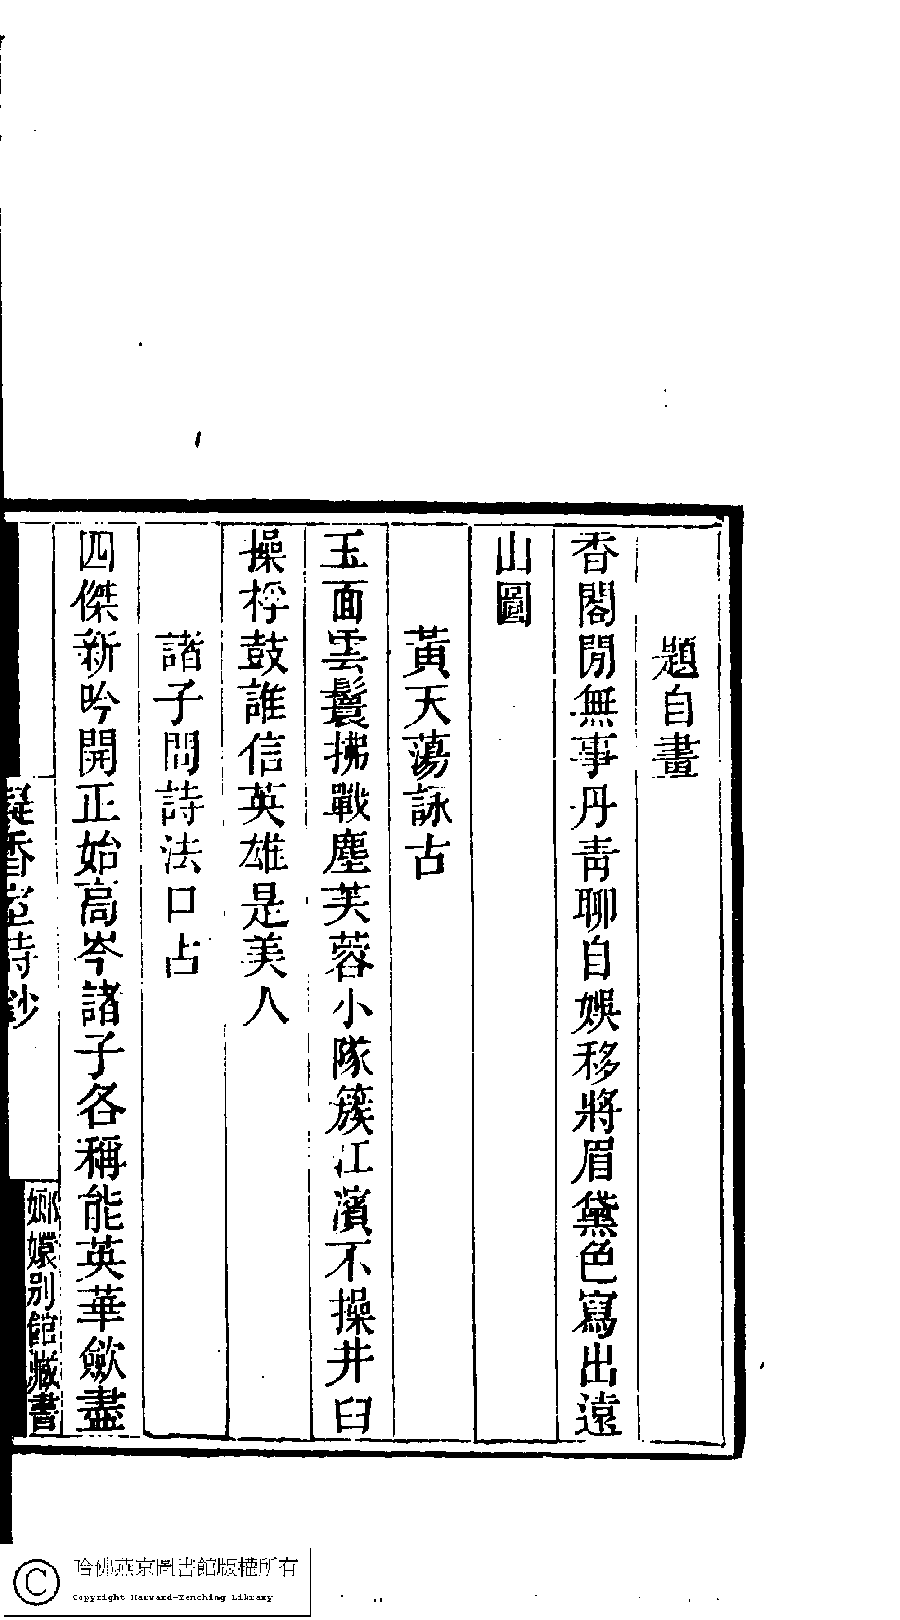 題自畫
香閣閒無事丹青聊自娛移將眉黛色寫出遠
山圖
黃天蕩詠古
玉面雲鬟拂戰塵芙蓉小隊簇江濱不操井臼
操桴鼓誰信英雄是美人
諸子問詩法口占
四傑新吟開正始高岑諸子各稱能英華斂盡
凝香室詩鈔
嫏嬛別館藏書
哈佛燕京圖書館版權所有
Copyright Harvard-Yenching Library